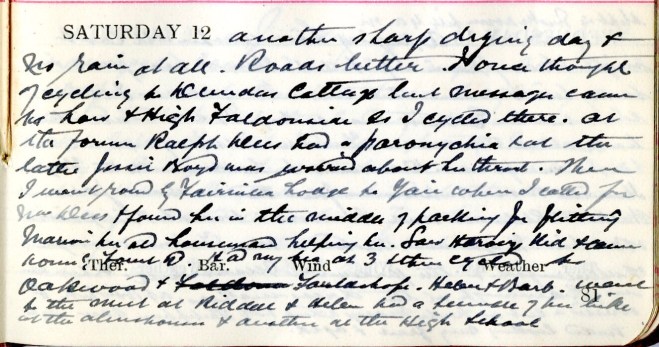 SATURDAY 12 another sharp drying day &
no rain at all. Roads better. I once thought
of cycling to Cottage but messages came
& High so I cycled there. At
the former Ralph had a paronychia & at the
latter Jessie Boyd was worried about her throat. Then
I went round by Fairnilee house to Yair when I called for
& found her in the middle of packing for flitting
Marion her old housemaid helping her. Saw kid & came
home Had my tea at 3 & then cycled to
Ther. Bar. Wind Weather
Oakwood & Fauldshope. Helen & Barb. went
81
to the meet at Riddell & Helen had a of her bike
at the almshouses & another at the High School